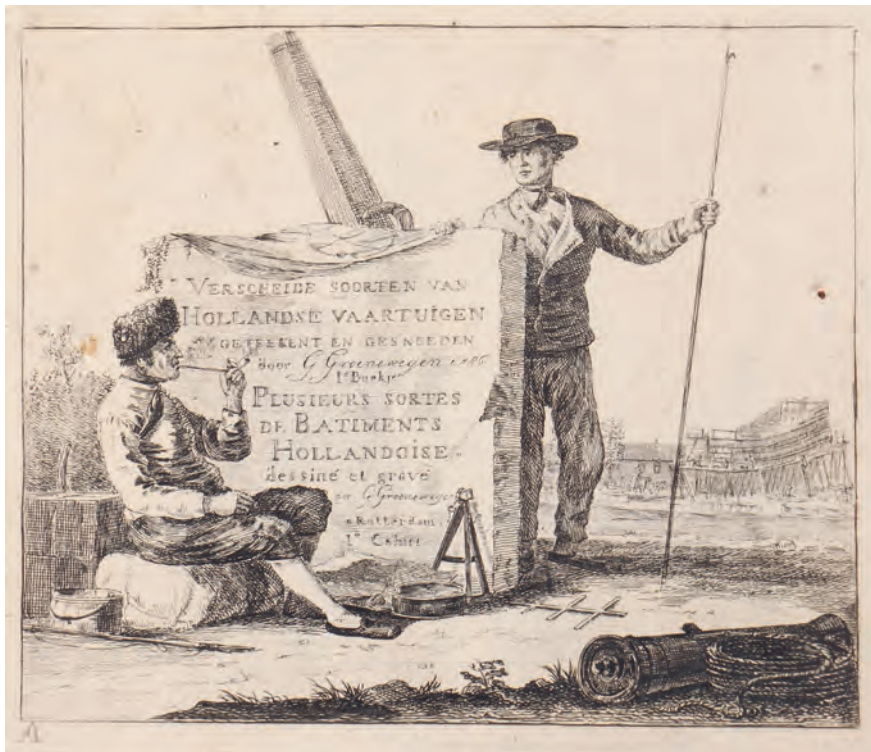 VERSCHEIDE SOORTEN VAN
HOLLANDSE VAARTUIGEN
GETEEKENT EN GESNEEDEN
door G Groenewegen
1e Boekje
PLUSIEURS SORTES
DE BATIMENTS
HOLLANDOISE
dessiné et gravé
G Groenewegen
a Rotterdam
1e Cahier
A